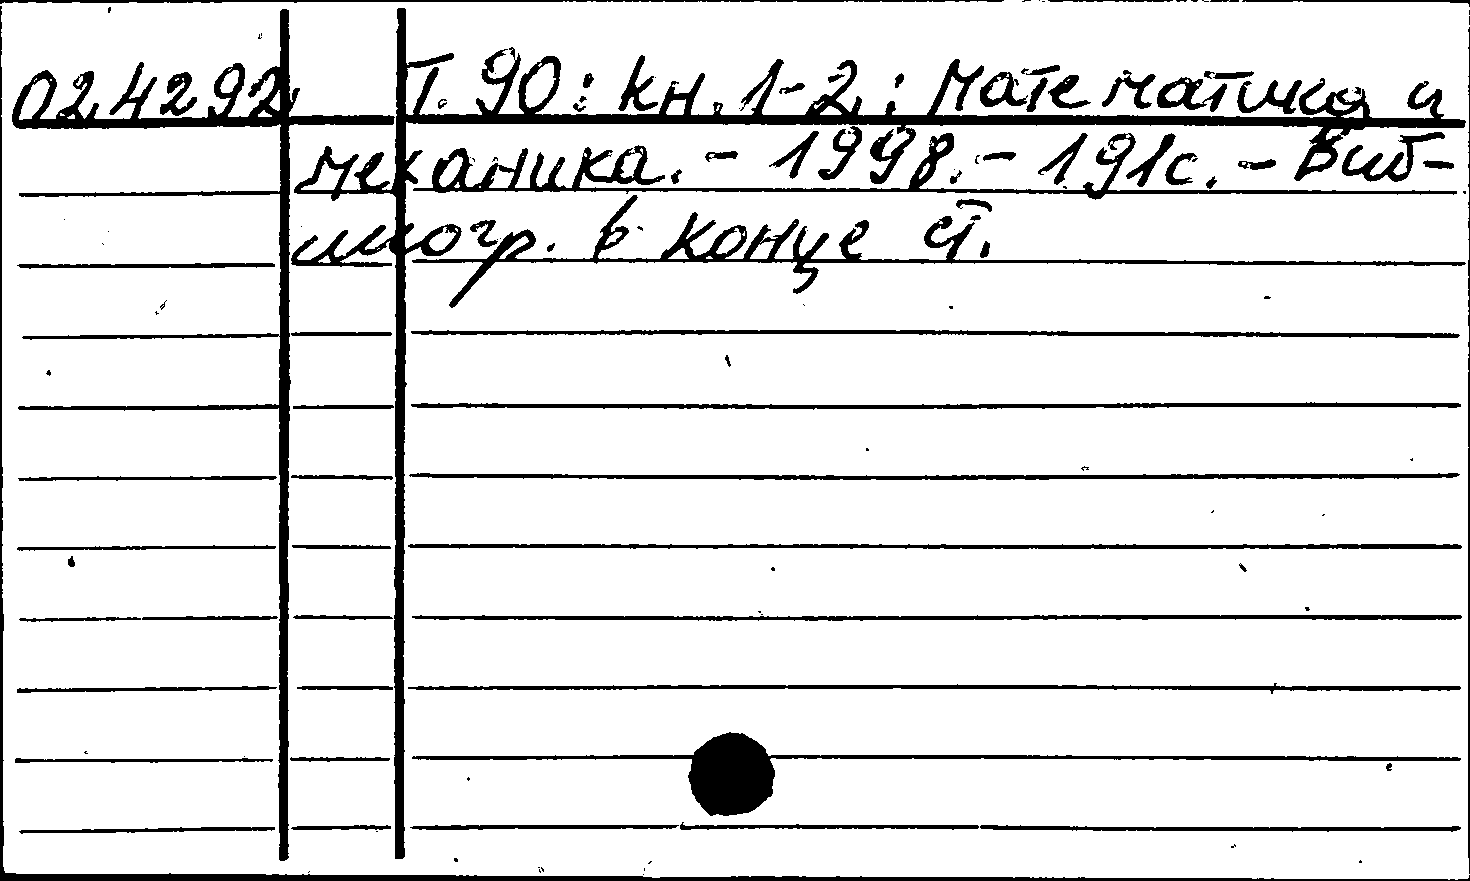 024292 Т. 90: кн. 1-2: Математика и
механика. - 1998. - 191с. - Биб-
лиогр. в конце ст.